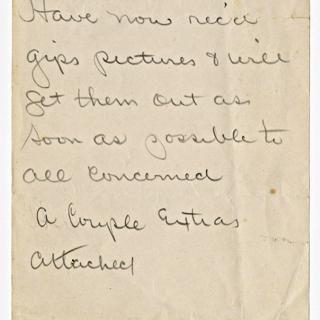 Have now rec'd
gips pictures & will
get them out as
soon as possible to
all concerned
A Couple Extras
Attached